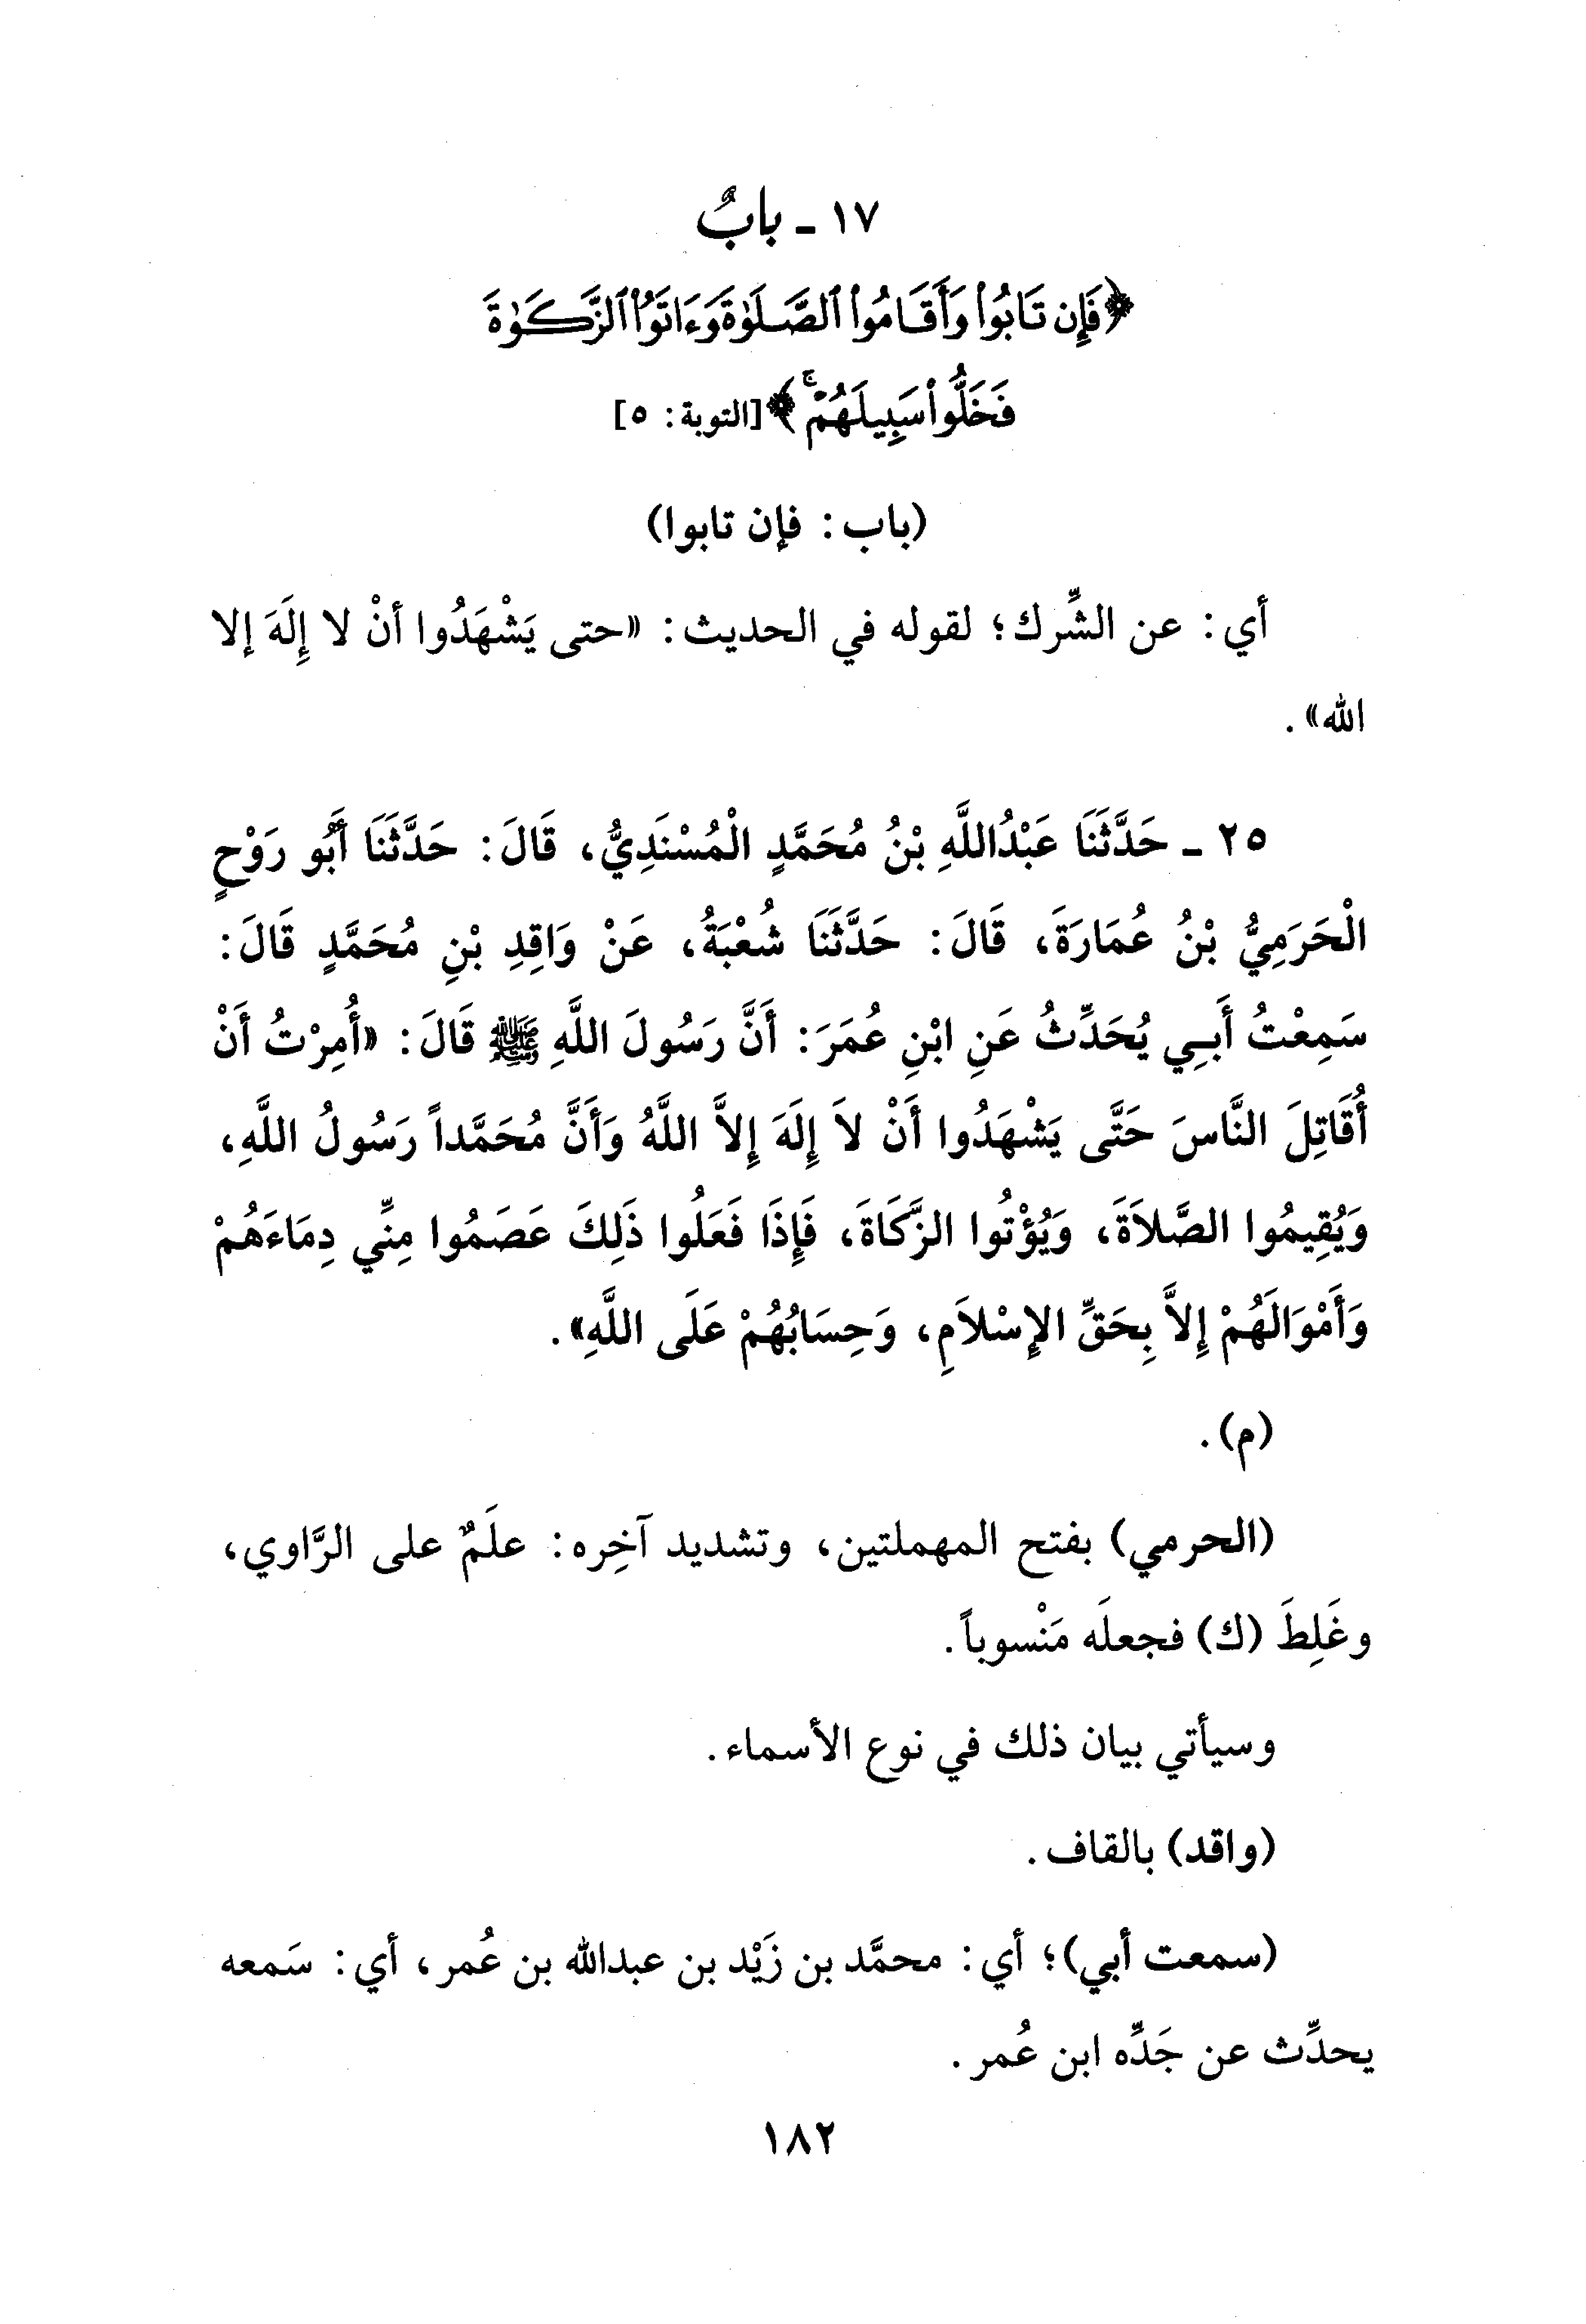 ١٧ ـ بابٌ
﴿فَإِن تَابُوا۟ وَأَقَامُوا۟ ٱلصَّلَوٰةَ وَءَاتَوُا۟ ٱلزَّكَوٰةَ
فَخَلُّوا۟ سَبِيلَهُمْ ۚ﴾ [التوبة: ٥]
(باب: فإن تابوا)
أي: عن الشِّرك؛ لقوله في الحديث: «حتى يَشْهَدُوا أنْ لا إِلَهَ إلا
الله».
٢٥ ـ حَدَّثَنَا عَبْدُاللَّهِ بْنُ مُحَمَّدٍ الْمُسْنَدِيُّ، قَالَ: حَدَّثَنَا أَبُو رَوْحٍ
الْحَرَمِيُّ بْنُ عُمَارَةَ، قَالَ: حَدَّثَنَا شُعْبَةُ، عَنْ وَاقِدِ بْنِ مُحَمَّدٍ قَالَ:
سَمِعْتُ أَبِي يُحَدِّثُ عَنِ ابْنِ عُمَرَ: أَنَّ رَسُولَ اللَّهِ ﷺ قَالَ: «أُمِرْتُ أَنْ
أُقَاتِلَ النَّاسَ حَتَّى يَشْهَدُوا أَنْ لاَ إِلَهَ إِلاَّ اللَّهُ وَأَنَّ مُحَمَّداً رَسُولُ اللَّهِ،
وَيُقِيمُوا الصَّلاَةَ، وَيُؤْتُوا الزَّكَاةَ، فَإِذَا فَعَلُوا ذَلِكَ عَصَمُوا مِنِّي دِمَاءَهُمْ
وَأَمْوَالَهُمْ إِلاَّ بِحَقِّ الإِسْلاَمِ، وَحِسَابُهُمْ عَلَى اللَّهِ».
(م).
(الحرمي) بفتح المهملتين، وتشديد آخِره: علَمٌ على الرَّاوي،
وغَلِطَ (ك) فجعلَه مَنْسوباً.
وسيأتي بيان ذلك في نوع الأسماء.
(واقد) بالقاف.
(سمعت أبي)؛ أي: محمَّد بن زَيْد بن عبدالله بن عُمر، أي: سَمعه
يحدِّث عن جَدِّه ابن عُمر.
١٨٢